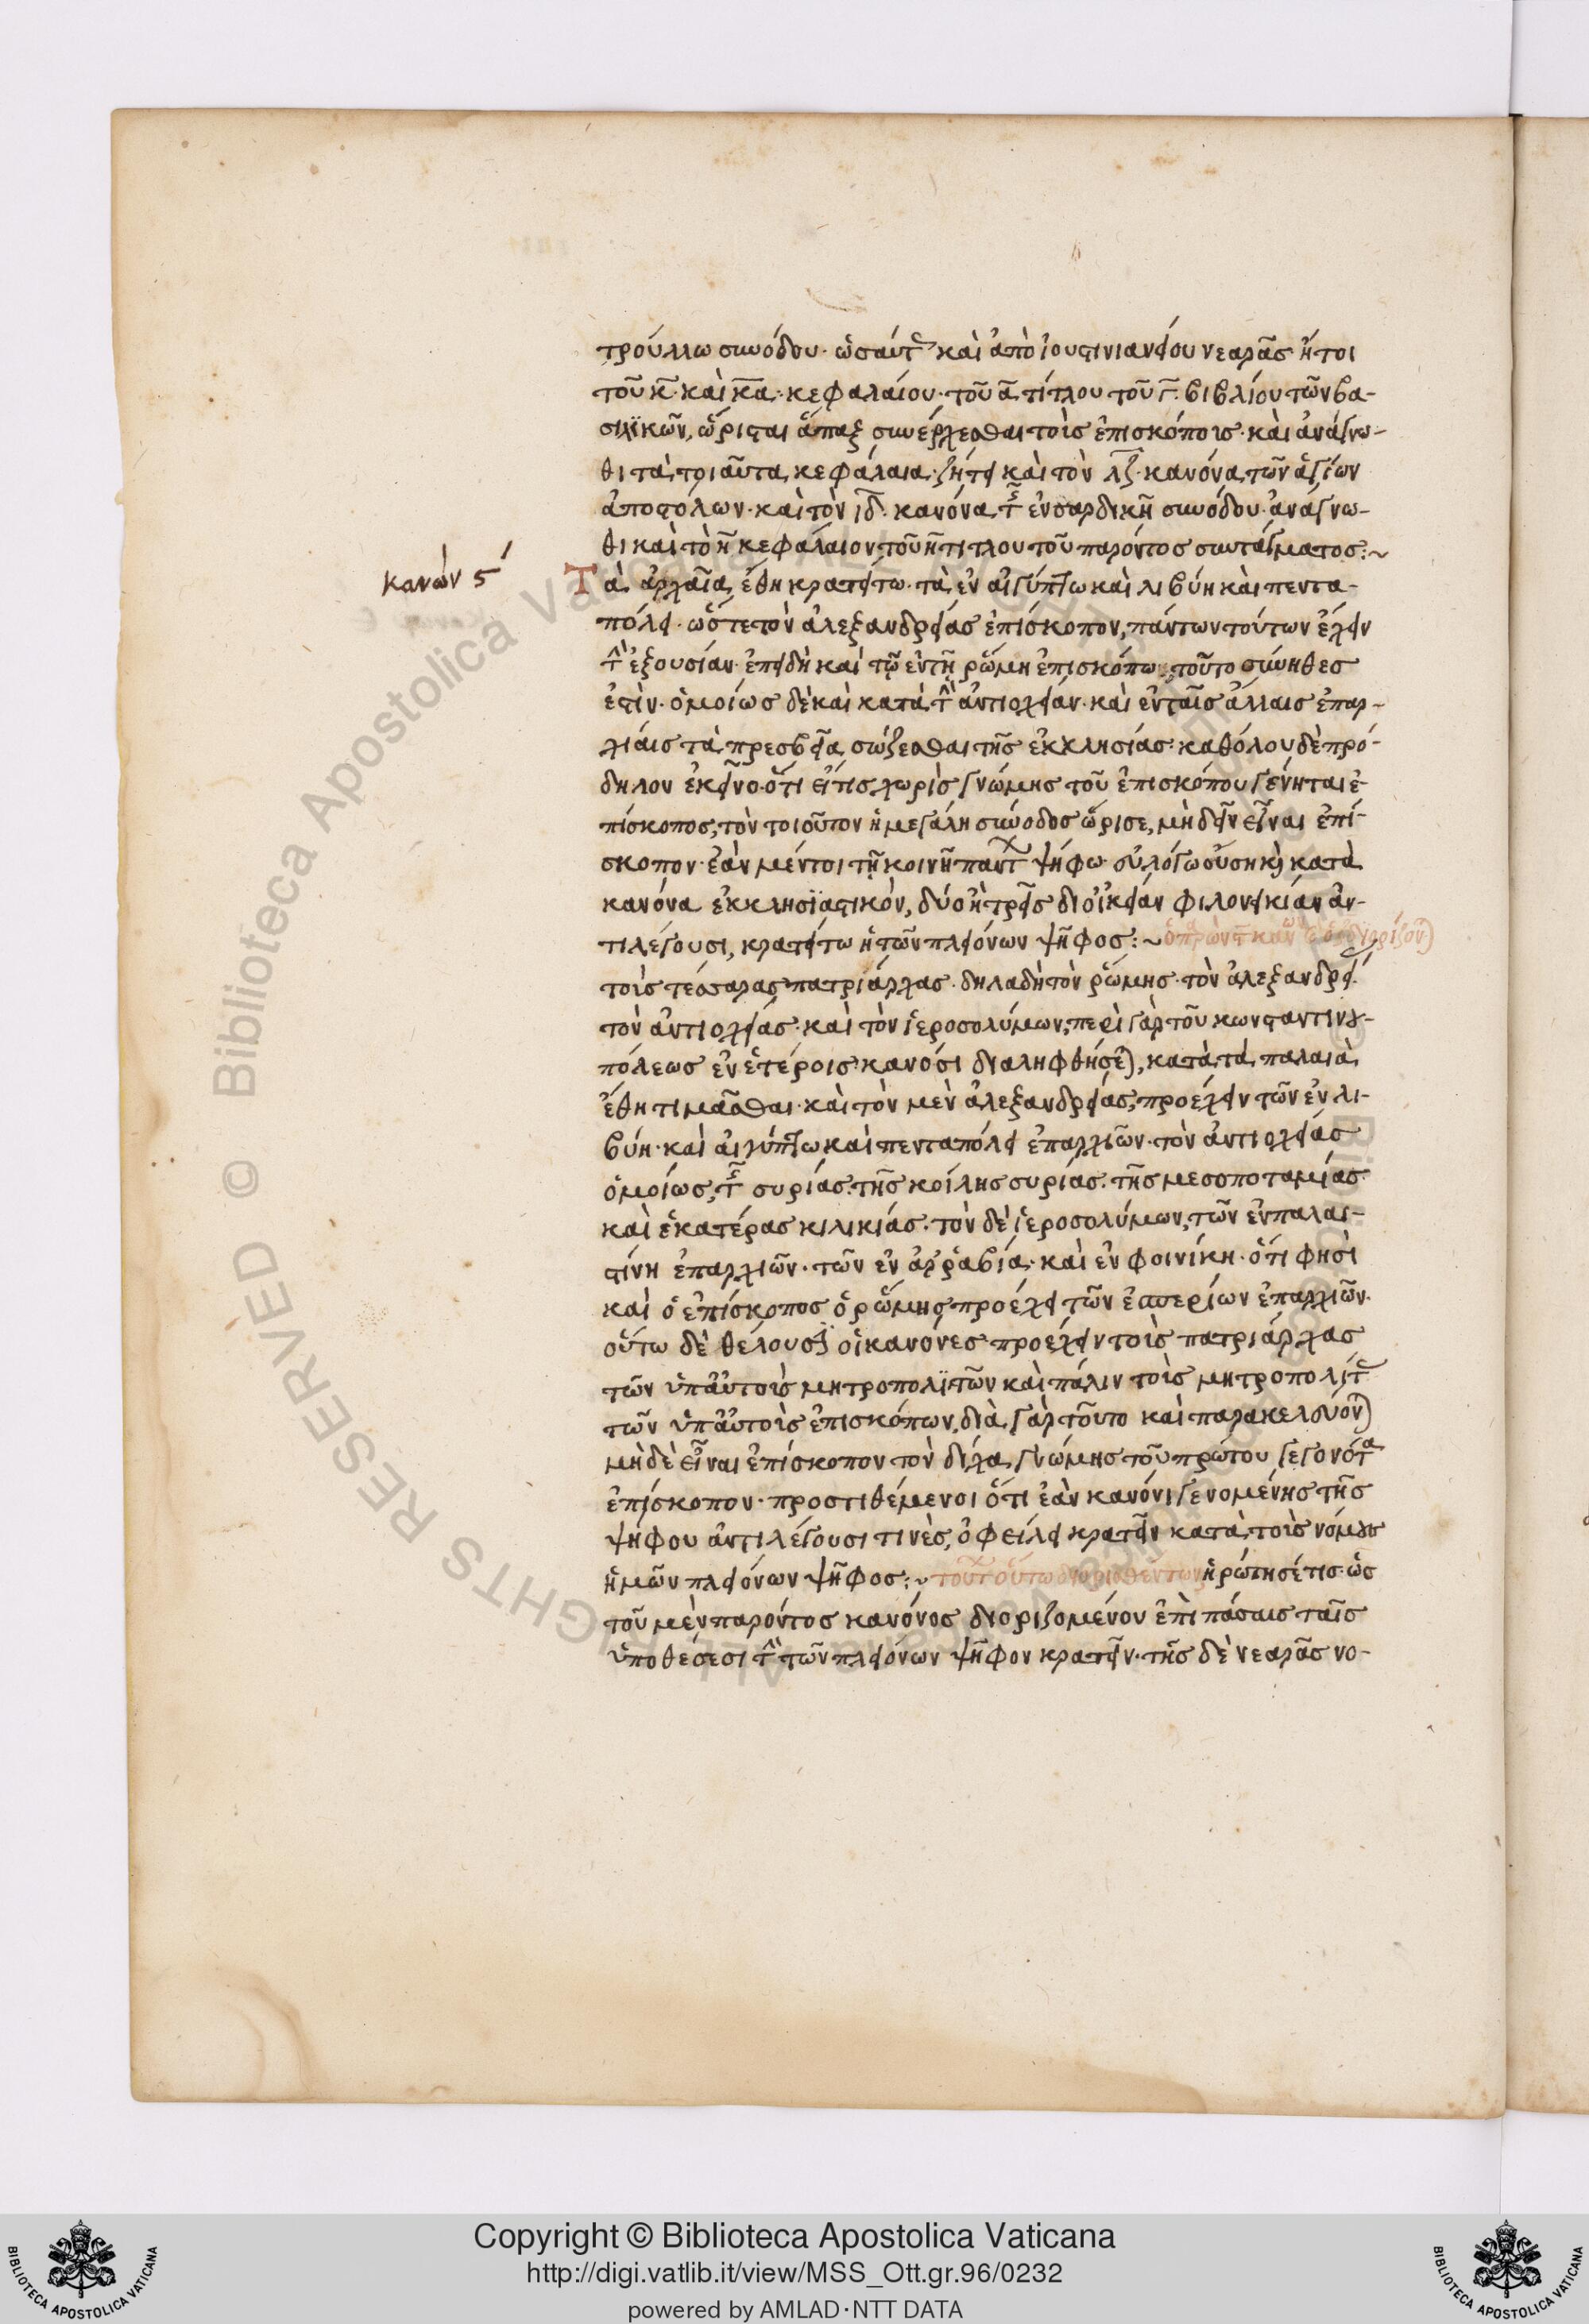 τρούλλω συνόδου· ὡσαύτ καὶ ἀπὸ ἰουστινιανείου νεαρᾶς ἤτοι
τοῦ κ̅· καὶ κ̅α̅· κεφαλαίου· τοῦ α̅ τίτλου τοῦ γ̅· βιβλίου τῶν βα-
σιλϊκῶν, ὥρισται ἅπαξ συνέρχεσθαι τοὺς ἐπισκόπους· καὶ ἀνάγνω-
θι τὰ τοιαῦτα κεφάλαια· ζήτει καὶ τὸν λ̅ζ̅· κανόνα τῶν ἁγίων
ἀποστόλων· καὶ τὸν ι̅δ̅· κανόνα τῆς ἐν σαρδικῆ συνόδου· ἀνάγνω-
θι καὶ τὸ η̅ κεφάλαιον τοῦ η̅ τίτλου τοῦ παρόντος συντάγματος:~
κανὼν ς΄
Τὰ ἀρχαῖα ἔθη κρατείτω· τὰ ἐν αἰγύπτω καὶ λιβύη καὶ πεντα-
πόλει· ὥστε τὸν ἀλεξανδρείας ἐπίσκοπον, πάντων τούτων ἔχειν
τὴν ἐξουσίαν· ἐπειδὴ καὶ τῷ ἐν τῇ ῥώμη ἐπισκόπω, τοῦτο σύνηθες
ἐστίν· ὁμοίως δὲ καὶ κατὰ τὴν ἀντιοχείαν· καὶ ἐν ταῖς ἄλλαις ἐπαρ-
χίαις τὰ πρεσβεῖα σώζεσθαι τῆς ἐκκλησίας· καθόλου δὲ πρό-
δηλον ἐκεῖνο· ὅτι εἴ τις χωρὶς γνώμης τοῦ ἐπισκόπου γένηται ἐ-
πίσκοπος, τὸν τοιοῦτον ἡ μεγάλη σύνοδος ὥρισε, μὴ δεῖν εἶναι ἐπί-
σκοπον· ἐὰν μέντοι τῇ κοινῇ παντ ψήφω εὐλόγω οὔση κ κατὰ
κανόνα ἐκκλησϊαστικὸν, δύο ἢ τρεῖς δι οἰκείαν φιλονεικίαν ἀν-
τιλέγουσι, κρατείτω ἡ τῶν πλειόνων ψῆφος:~ ὁ παρὼν κανὼν
τοὺς τέσσαρας πατριάρχας· δηλαδὴ τὸν ῥώμης· τὸν ἀλεξανδρεί·
τὸν ἀντιοχείας· καὶ τὸν ἱεροσολύμων, περὶ γὰρ τοῦ κωνσταντινου-
πόλεως ἐν ἑτέροις κανόσι διαληφθήσε), κατὰ τὰ παλαιὰ
ἔθη τιμᾶσθαι· καὶ τὸν μὲν ἀλεξανδρείας, προέχειν τῶν ἐν λι-
βύη· καὶ αἰγύπτω καὶ πενταπόλει ἐπαρχιῶν· τὸν ἀντιοχείας
ὁμοίως, τῆς συρίας· τῆς κοίλης συρίας· τῆς μεσοποταμίας
καὶ ἑκατέρας κιλικίας· τὸν δὲ ἱεροσολύμων, τῶν ἐν παλαι-
στίνη ἐπαρχιῶν· τῶν ἐν ἀῤῥαβία· καὶ ἐν φοινίκη· ὅτι φησὶ
καὶ ὁ ἐπίσκοπος ὁ ῥώμης προέχει τῶν ἑσπερίων ἐπαρχιῶν·
οὕτω δὲ θέλουσϊ οἱ κανόνες προέχειν τοὺς πατριάρχας
τῶν ὑπ αὐτοὺς μητροπολϊτῶν καὶ πάλιν τοὺς μητροπολίτ
τῶν ὑπ αὐτοὺς ἐπισκόπων, διὰ γὰρ τοῦτο καὶ παρακελεύον)
μὴ δὲ εἶναι ἐπίσκοπον τὸν δίχα γνώμης τοῦ πρώτου γεγονότα
ἐπίσκοπον· προστιθέμενοι ὅτι ἐὰν κανόνι γενομένης τῆς
ψήφου ἀντιλέγουσι τινὲς, ὀφείλει κρατεῖν κατὰ τοὺς νόμους
ἡμῶν πλειόνων ψῆφος:~ τούτ οὕτω διορισθέντων ἠρώτησέ τις· ὡς
τοῦ μὲν παρόντος κανόνος διοριζομένου ἐπὶ πάσαις ταῖς
ὑποθέσεσι τὴν τῶν πλειόνων ψῆφον κρατεῖν· τῆς δὲ νεαρᾶς νο-
Copyright © Biblioteca Apostolica Vaticana
http://digi.vatlib.it/view/MSS_Ott.gr.96/0232
powered by AMLAD·NTT DATA
BIBLIOTECA APOSTOLICA VATICANA
BIBLIOTECA APOSTOLICA VATICANA